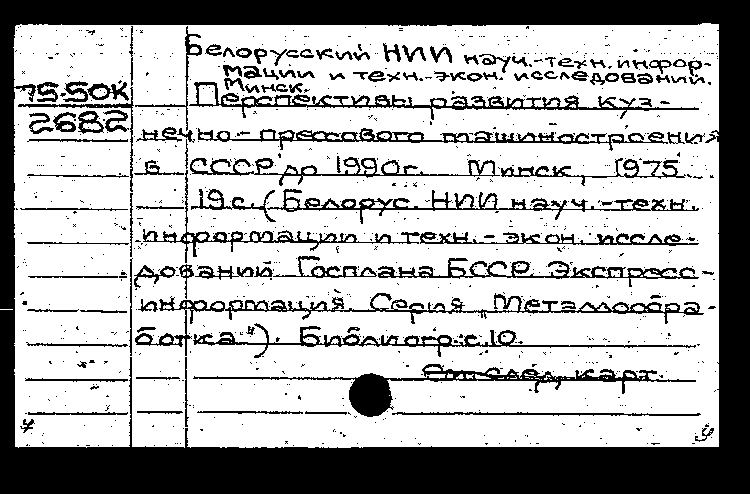 Белорусский НИИ науч.-техн. инфор-
мации и техн.-экон. исследований.
Минск.
75-50К
2682
Перспективы развития куз-
нечно-прессового машиностроения
в СССР до 1990г. Минск, 1975
19с. (Белорус. НИИ науч.-техн.
информации и техн.-экон. иссле-
дований Госплана БССР. Экспресс-
информация. Серия „Металлообра-
ботка"). Библиогр.:с.10.
См. след. карт.